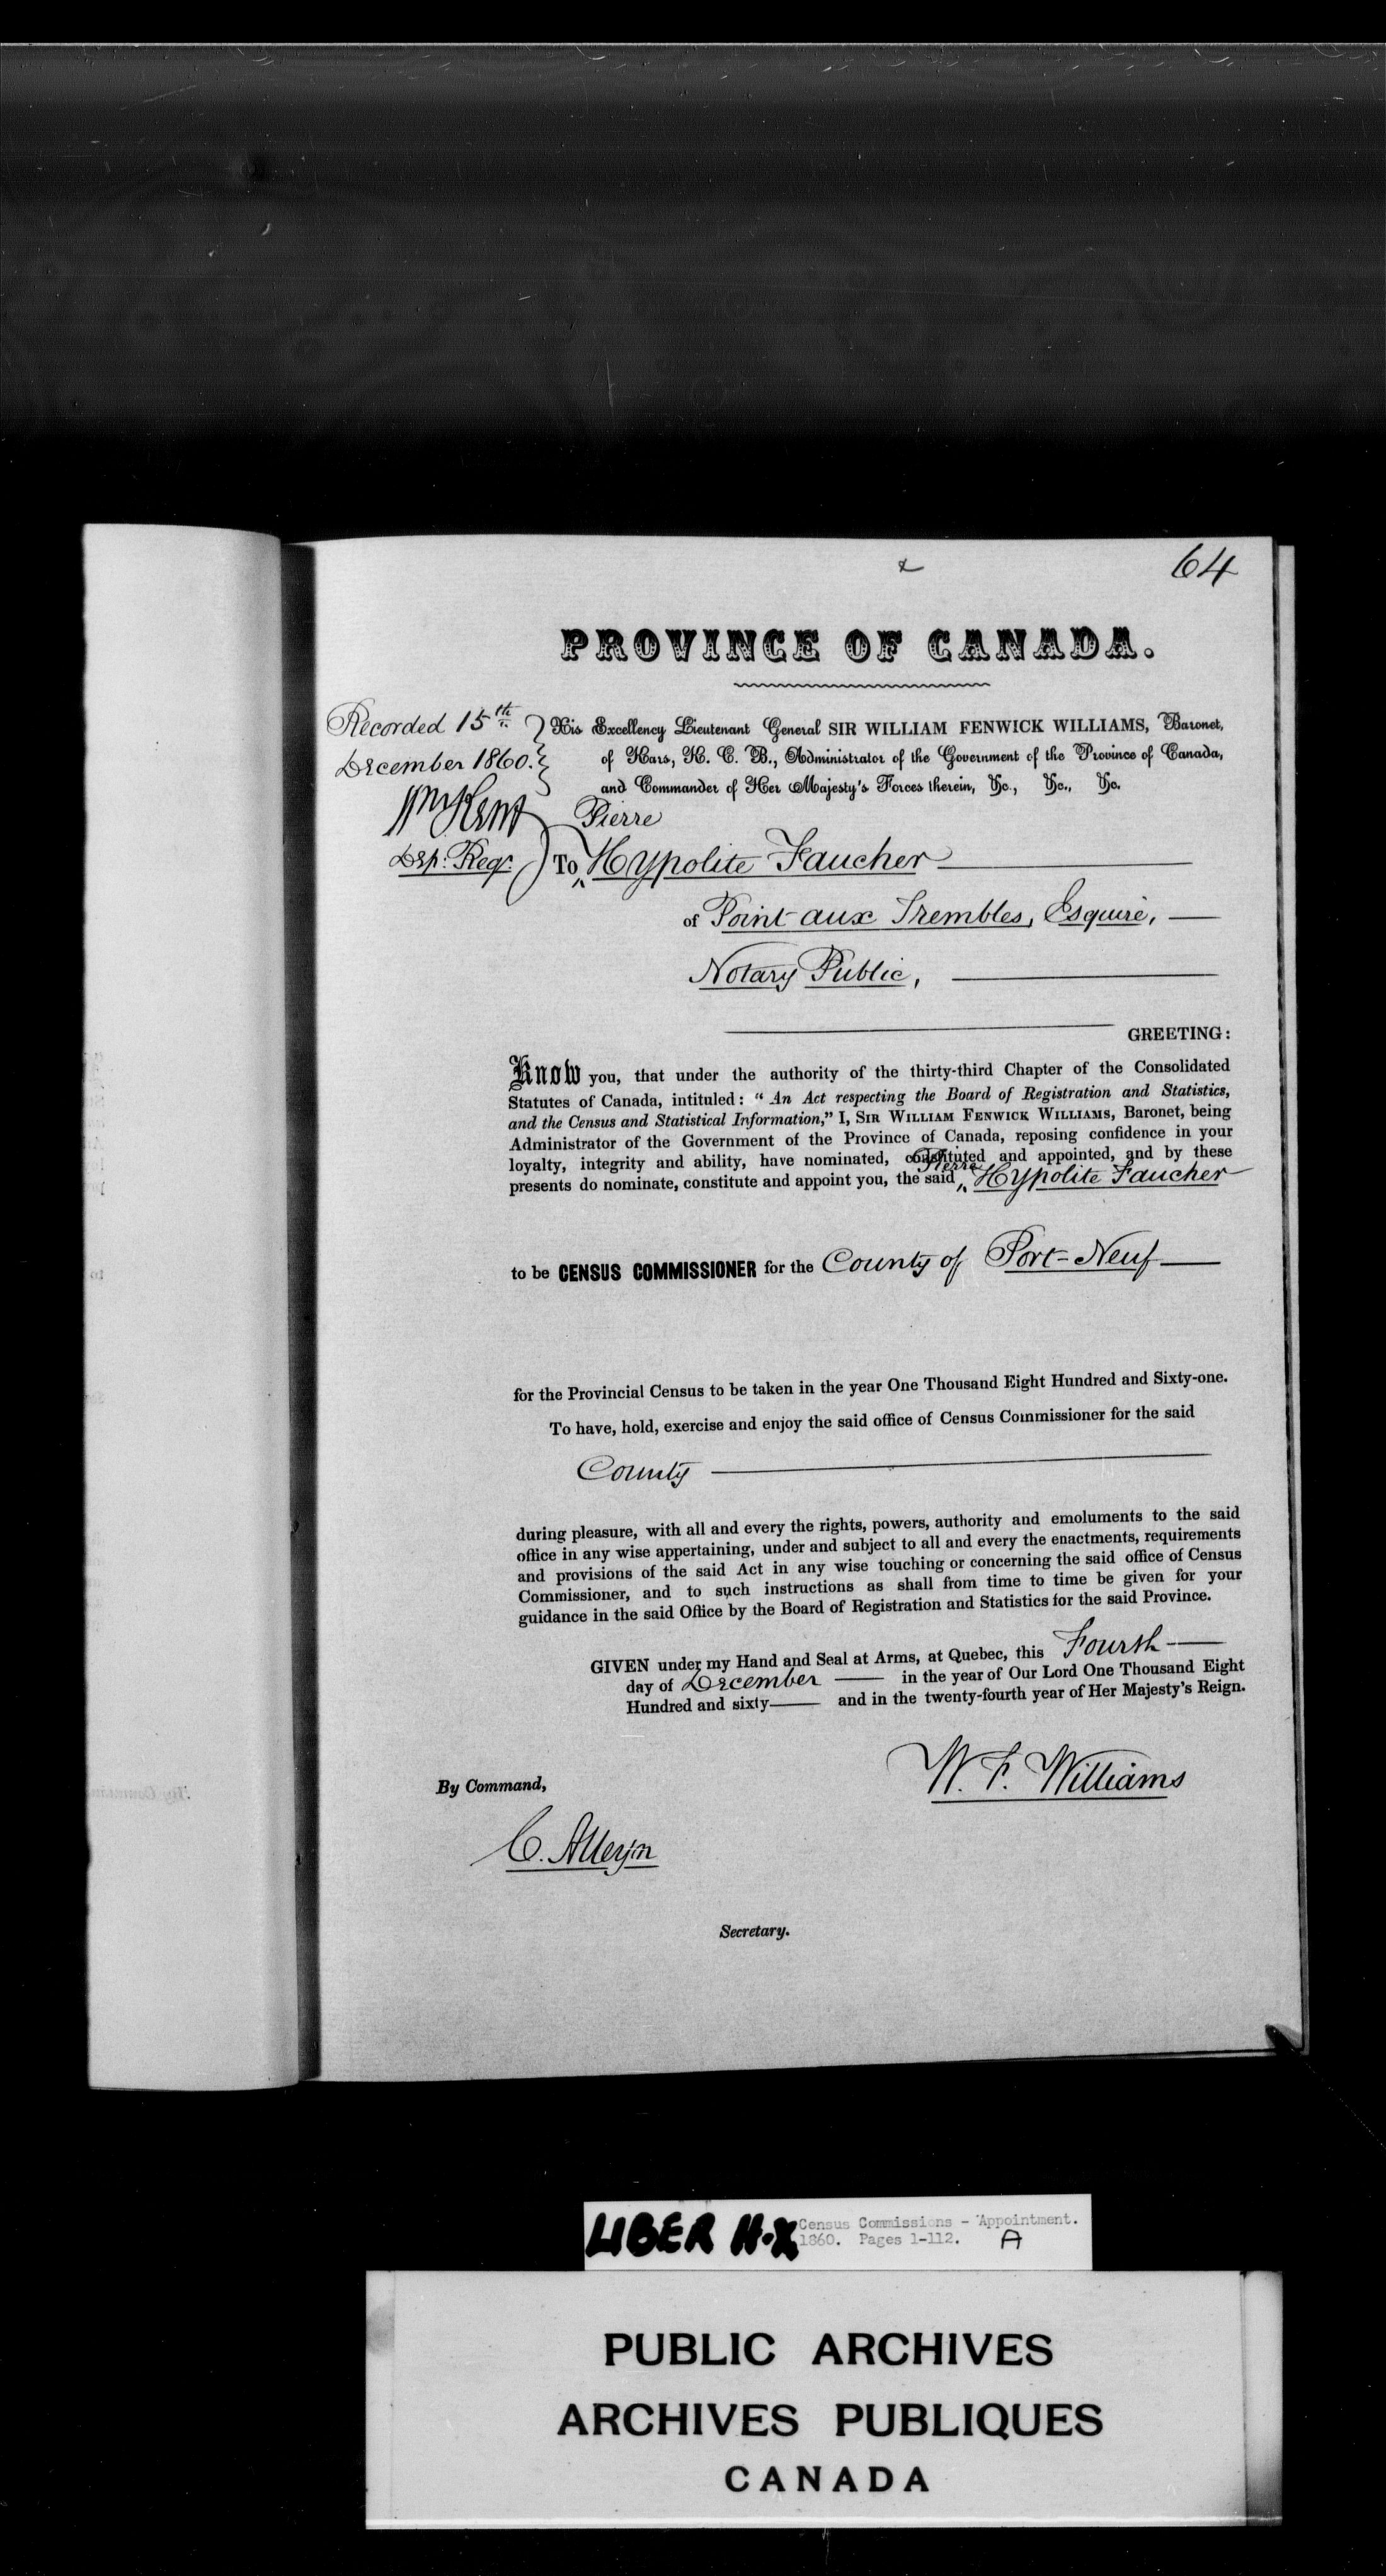 64
PROVINCE OF CANADA.
Recorded 15th
December 1860.
Wm Kent
Dep: Regr.
His Excellency Lieutenant General SIR WILLIAM FENWICK WILLIAMS, Baronet,
of Kars, K. C. B., Administrator of the Government of the Province of Canada,
and Commander of Her Majesty's Forces therein, &c., &c., &c.
Pierre
To ‸ Hypolite Faucher
of Point aux Trembles, Esquire,
Notary Public,
GREETING:
Know you, that under the authority of the thirty-third Chapter of the Consolidated
Statutes of Canada, intituled: "An Act respecting the Board of Registration and Statistics,
and the Census and Statistical Information," I, SIR WILLIAM FENWICK WILLIAMS, Baronet, being
Administrator of the Government of the Province of Canada, reposing confidence in your
loyalty, integrity and ability, have nominated, constituted and appointed, and by these
Pierre
presents do nominate, constitute and appoint you, the said ‸ Hypolite Faucher
to be CENSUS COMMISSIONER for the County of Port-Neuf
for the Provincial Census to be taken in the year One Thousand Eight Hundred and Sixty-one.
To have, hold, exercise and enjoy the said office of Census Commissioner for the said
County
during pleasure, with all and every the rights, powers, authority and emoluments to the said
office in any wise appertaining, under and subject to all and every the enactments, requirements
and provisions of the said Act in any wise touching or concerning the said office of Census
Commissioner, and to such instructions as shall from time to time be given for your
guidance in the said Office by the Board of Registration and Statistics for the said Province.
GIVEN under my Hand and Seal at Arms, at Quebec, this Fourth
day of December in the year of Our Lord One Thousand Eight
Hundred and sixty and in the twenty-fourth year of Her Majesty's Reign.
W. F. Williams
By Command,
C. Alleyn
Secretary.
LIBER H-X
Census Commissions - Appointment.
1860. Pages 1-112. A
PUBLIC ARCHIVES
ARCHIVES PUBLIQUES
CANADA